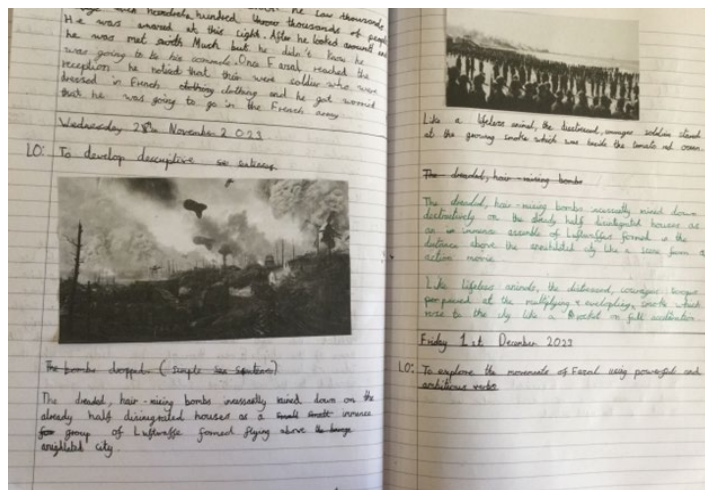 hundred thousands of people
He was amazed at this sight. After he looked around and
he was met with Much but he didn't know he
was going to be his comrade. Once Faral reached the
reception he noticed that their were soldier who were
dressed in French clothing clothing and he got worried
that he was going to go in the French army
Wednesday 28th November 2023
LO: To develop descriptive sentences
The bombs dropped. (simple sentence)
The dreaded, hair-raising bombs incessantly rained down on the
already half disintegrated houses as a small immence
group of Luftwaffe formed flying above
anighlated city.
Like a lifeless animal, the distressed, soldiers stood
at the growing smoke which was beside the tomato red ocean
The dreaded, hair-raising bombs
The dreaded, hair-raising bombs incessantly rained down
destructively on the already half disintegrated houses as
an immence assemble of Luftwaffe formed in the
distance above the city like a scene from a
action movie
Like lifeless animals, the distressed,
at the multiplying & enveloping smoke which
rose to the sky like a Rocket on full acceleration
Friday 1st December 2023
LO: To explore the movements of Faral using powerful and
ambitious verbs